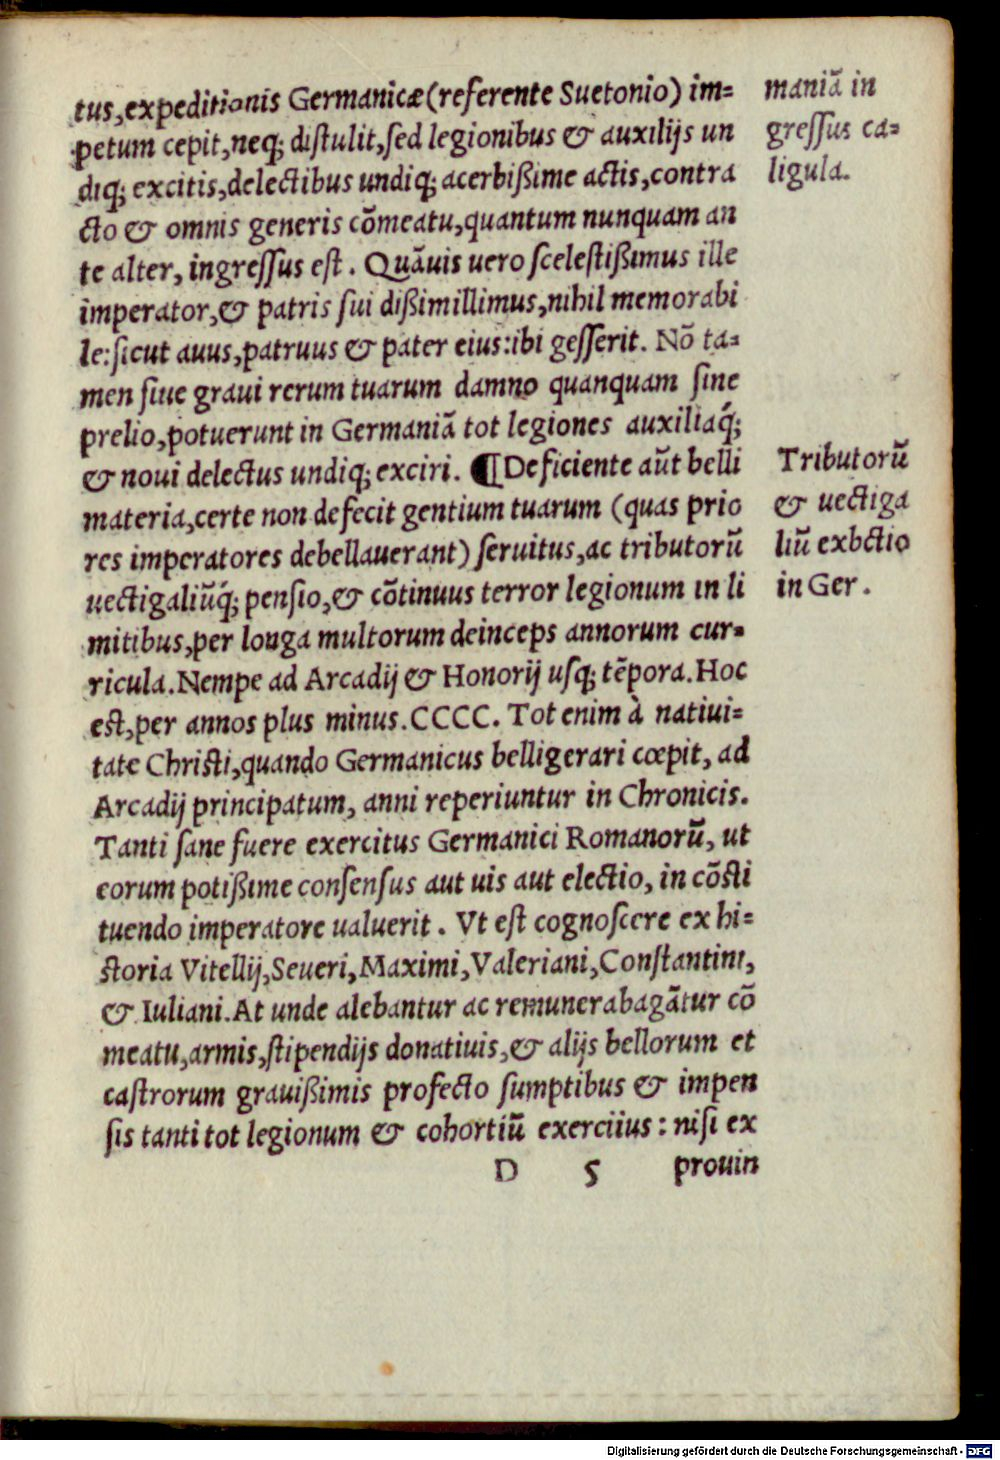 tus,expeditionis Germanicæ(referente Suetonio) im=
petum cepit,neq; diſtulit,ſed legionibus & auxilijs un
diq; excitis,delectibus undiq; acerbißime actis,contra
cto & omnis generis cõmeatu,quantum nunquam an
te alter, ingreſſus eſt. Quãuis uero ſceleſtißimus ille
imperator,& patris ſui dißimillimus,nihil memorabi
le:ſicut auus,patruus & pater eius:ibi geſſerit. Nõ ta=
men ſiue graui rerum tuarum damno quanquam ſine
prelio,potuerunt in Germaniã tot legiones auxiliaq́;
& noui delectus undiq; exciri. ¶Deficiente aũt belli
materia,certe non defecit gentium tuarum (quas prio
res imperatores debellauerant) ſeruitus,ac tributorũ
uectigaliũq́; penſio,& cõtinuus terror legionum in li
mitibus,per longa multorum deinceps annorum cur=
ricula.Nempe ad Arcadij & Honorij uſq; tẽpora.Hoc
est,per annos plus minus.CCCC. Tot enim à natiui=
tate Chriſti,quando Germanicus belligerari cœpit, ad
Arcadij principatum, anni reperiuntur in Chronicis.
Tanti ſane fuere exercitus Germanici Romanorũ, ut
eorum potißime conſenſus aut uis aut electio, in cõſti
tuendo imperatore ualuerit. Vt eſt cognoſcere ex hi=
ſtoria Vitellij,Seueri,Maximi,Valeriani,Conſtantini,
& Iuliani.At unde alebantur ac remunerabagãtur cõ
meatu,armis,ſtipendijs donatiuis,& alijs bellorum et
caſtrorum grauißimis profecto ſumptibus & impen
ſis tanti tot legionum & cohortiũ exerciius: niſi ex
D 5 prouin
maniã in
greſſus ca=
ligula.
Tributorũ
& uectiga
liũ exbctio
in Ger.
Digitalisierung gefördert durch die Deutsche Forschungsgemeinschaft - DFG